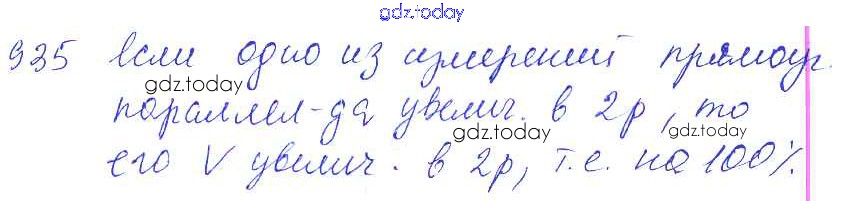 gdz.today
935 Если одно из измерений прямоуг.
gdz.today
gdz.today
параллел-да увелич. в 2р, то
gdz.today
gdz.today
его V увелич. в 2р, т.е. на 100%